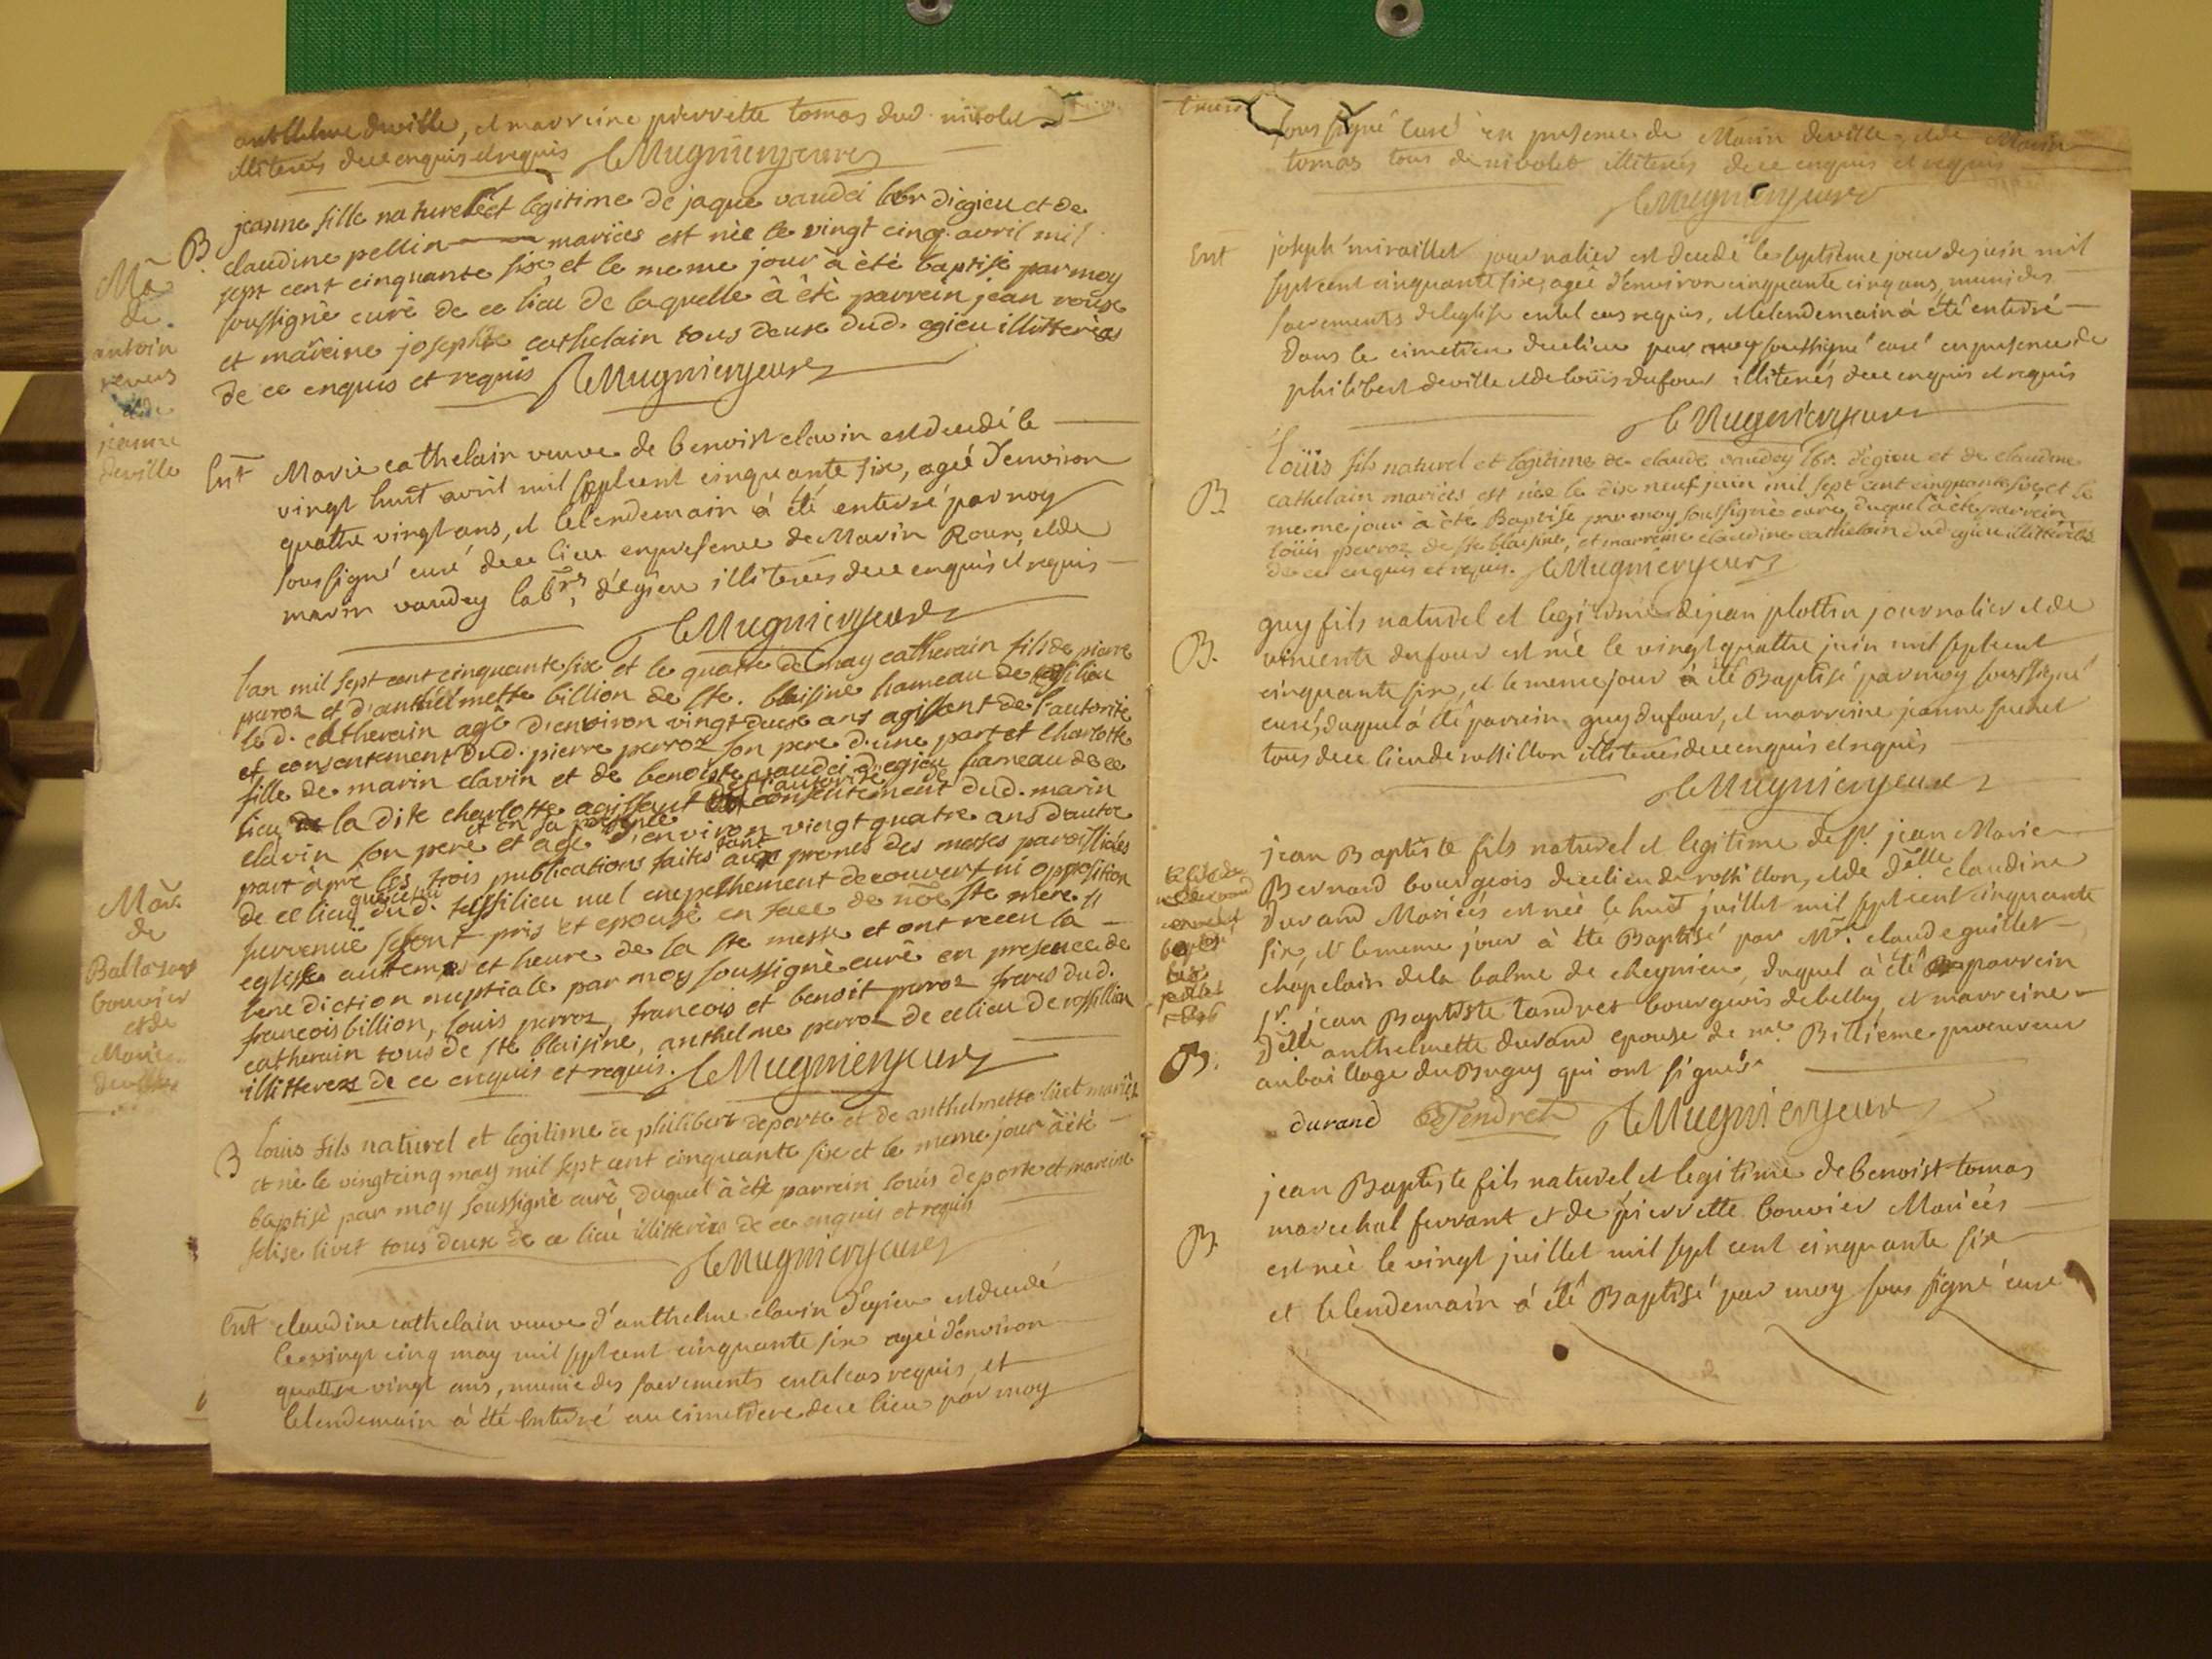 anthelme deville, et marreine pierrette tomas dud. nivolet
illiterés de ce enquis et requis Le Mugnier curé
B. jeanne fille naturelle et legitime de jaque vaudei lbr d'egieu et de
claudine pellin mariées est née le vingt cinq avril mil
sept cent cinquante sixe et le meme jour à été baptisé par moy
soussigné curé de ce lieu de laquelle à été parrein jean rouse
et mareine josephte cathelain tous deuse dud. egieu illitterés
de ce enquis et requis Le Mugnier cure
Ent Marie cathelain veuve de benoist clavin est decedé le
vingt huit avril mil sept cent cinquante six, ageé d'environ
quattre vingt ans, et le lendemain à été enterré par moy
sous signé curé de ce lieu en presence de Marin Roux, et de
marin vaudey labrs d'égieu illiterés de ce enquis et requis
Le Mugnier curé
l'an mil sept cent cinquante sixe et le quatre de may catherain fils de pierre
perroz et d'anthelmette billion de ste. blaisine hameau de
le d. catherain agé d'environ vingt deuxe ans agissant de l'autorité
et consentement dud. pierre perroz son pere d'une part et charlotte
fille de marin clavin et de benoiste vaudei d'egieu hameau de ce
lieu la dite charlotte agissant de l'autorité et consentement dud. marin
clavin son pere et en sa presence et agé d'environ vingt quatre ans d'autre
part après les trois publications faites tant aux prones des messes paroissiales
de ce lieu que celui dud. nul empechement decouvert ni opposition
survenue se sont pris et epousé en face de nõe ste mere
eglise au tems et heure de la ste messe et ont receu la
benediction nuptiale par moy soussigné curé en presence de
francois billion, louis perroz, francois et benoit perroz freres dud.
catherain tous de ste blaisine, anthelme perroz de ce lieu de rossillion
illitterers de ce enquis et requis. Le Mugnier curé
B louis fils naturel et legitime de philibert deporte et de anthelmette livet mariés
et né le vingt cinq may mil sept cent cinquante sixe et le meme jour à été
baptisé par moy soussigné curé duquel à été parrein louis deporte et mareine
felise livet tous deuse de ce lieu illitterés de ce enquis et requis
Le Mugnier curé
Ent claudine cathelain veuve d'anthelme clavin d'egieu est decedé
le vingt cinq may mil sept cent cinquante six ageé d'environ
quattre vingt ans, munie des sacrements en tel cas requis, et
le lendemain à été enterré au cimetiere de ce lieu par moy
Ma
de
antoin
et de
jeanne
deville
Mar.
de
Baltazar
bouvier
et de
Marie
deville
sous signé curé en presence de Marin deville et de Marin
tomas tous de nivolet illiterés de ce enquis et requis
Le Mugnier curé
Ent joseph miraillet journalier est decedé le septieme jour de juin mil
sept cent cinquante six, ageé d'environ cinquante cinq ans, muni des
sacrements de l'eglise en tel cas requis, et le lendemain à été enterré
dans le cimetiere de ce lieu par moy soussigné curé en presence de
philibert deville et de loüis dufour illiterés de ce enquis et requis
Le Mugnier curé
B. loüis fils naturel et legitime de claude vaudey lbr. d'egieu et de claudine
cathelain mariées est née le dixe neuf juin mil sept cent cinquante sixe et le
meme jour à été Baptisé par moy soussigné curé, duquel à été parrein
loüis perroz de ste blaisine, et marreine claudine cathelain dud egieu illitterés
de ce enquis et requis. Le Mugnier curé
B. guy fils naturel et legitime de jean plottin journalier et de
vincente dufour est né le vingt quattre juin mil sept cent
cinquante six, et le meme jour à été Baptisé par moy soussigné
curé, duquel à été parrein guy dufour, et marreine jeanne
tous de ce lieu de rossillon illiterés de ce enquis et requis
Le Mugnier curé
jean Baptiste fils naturel et legitime de sr. jean Marie
Bernard bourgeois de ce lieu de rossillon, et de delle claudine
durand Mariées est né le huit juillet mil sept cent cinquante
six, et le meme jour à été Baptisé par Mre. claude guillet
chapelain de la balme de cheynieu, duquel à été parrein
sr. jean Baptiste tandret bourgeois de belley, et marreine
B. delle anthelmette durand epouse de me. Billieme procureur
au bailliage du Bugey qui ont signés
durand Tendret Le Mugnier curé
B. jean Baptiste fils naturel et legitime de benoist tomas
marechal ferrant et de pierrette bouvier Mariées
est neé le vingt juillet mil sept cent cinquante six
et le lendemain à été Baptisé par moy sous signé curé